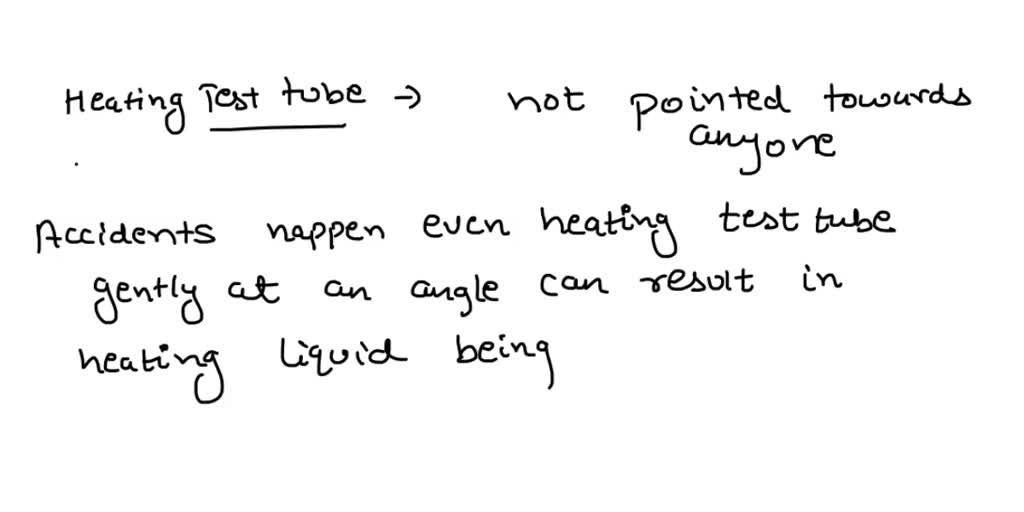 Heating Test tube → not pointed towards
anyone
Accidents nappen even heating test tube
gently at an angle can result in
heating liquid being